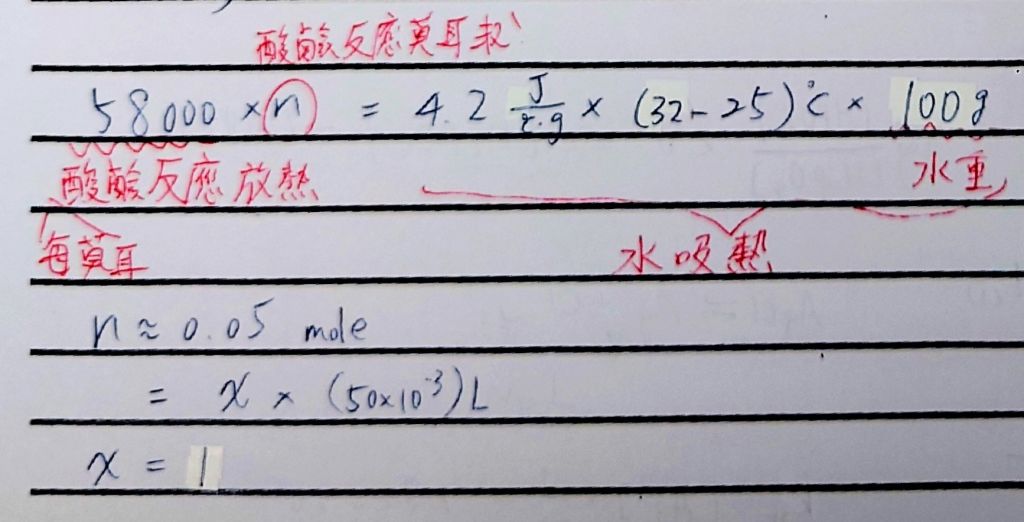 酸鹼反應莫耳數
58000 × n = 4.2 J/℃·g × (32-25)℃ × 100g
酸鹼反應放熱 水重
每莫耳 水吸熱
n ≈ 0.05 mole
= x × (50×10⁻³)L
x = 1